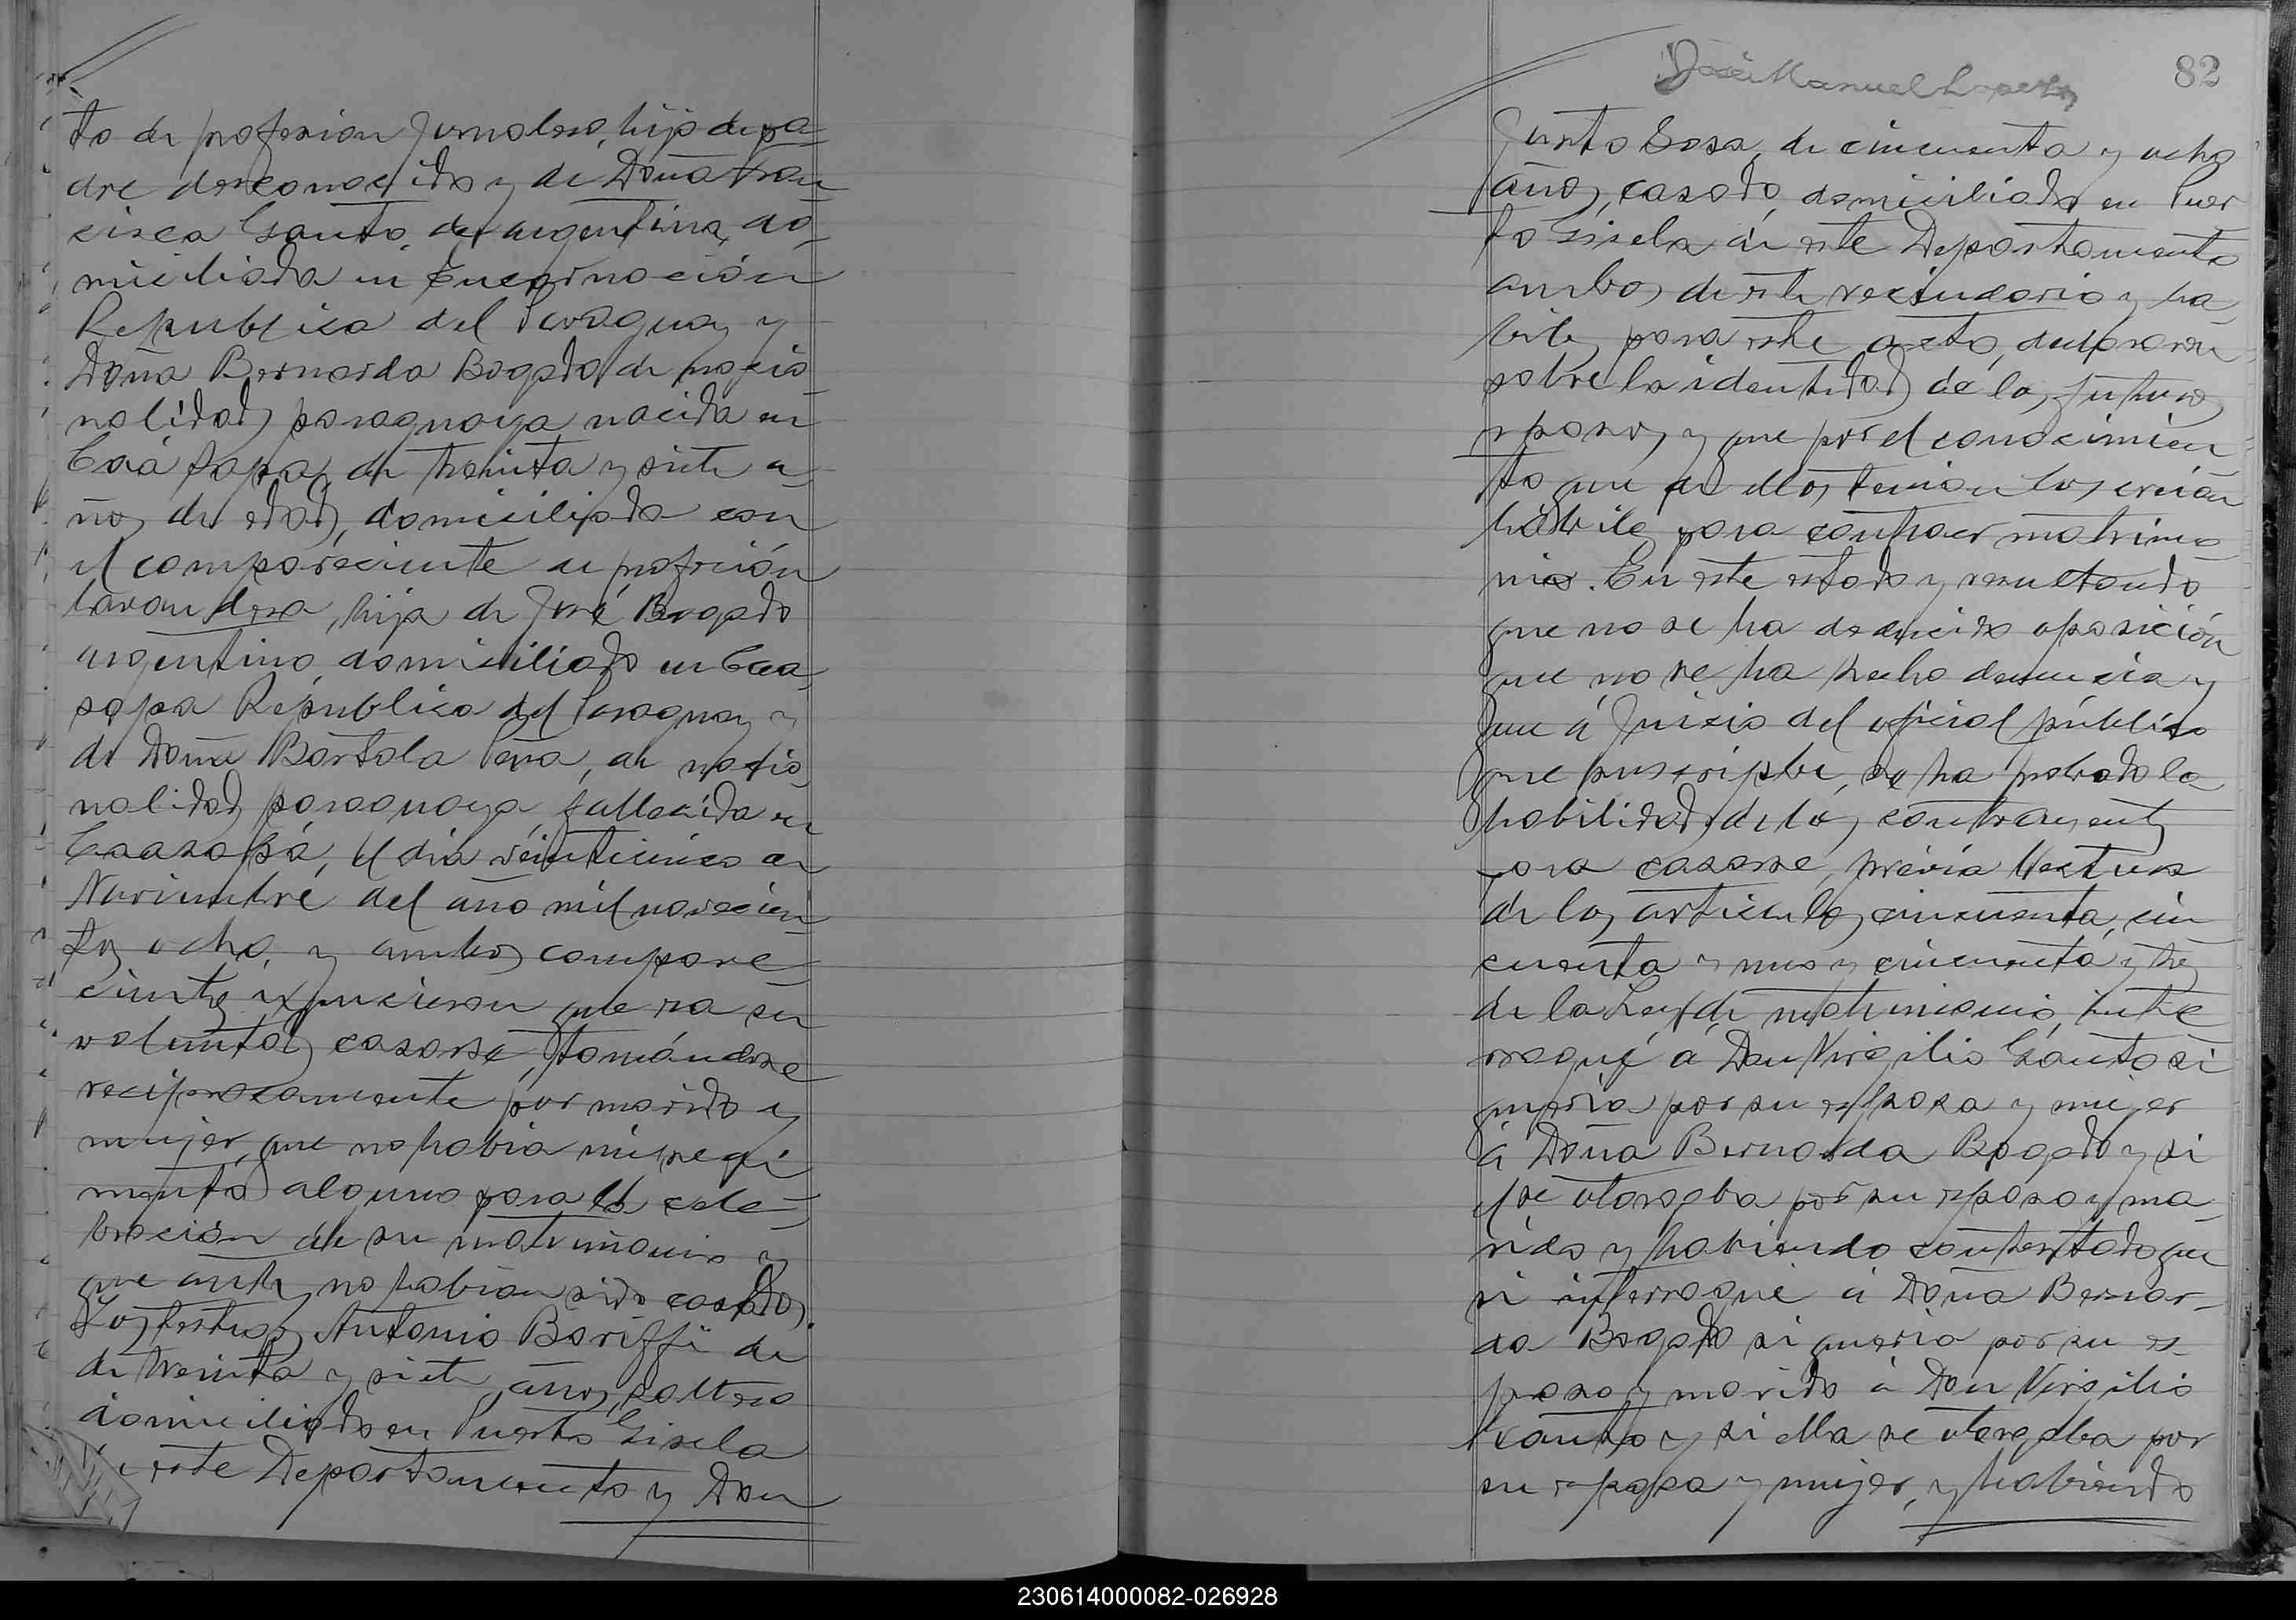 to de profesion Jornalero, hijo de pa-
dre desconocido y de Doña Fran
cisca Gauto, de argentina, do-
miciliada en Encarnación
Republica del Paraguay y
Doña Bernarda Bogado de nacio
nalidad paraguaya nacida en
Caá sapa, de treinta y siete a
ños de edad, domiciliada con
el compareciente de profeción
lavandera, hija de José Bogado
argentino, domiciliado en Caa
sapa República del Paraguay y
de Doña Bartola Peña, de nacio
nalidad paraguaya, fallecida en
Caazapá, el día veinticinco de
Noviembre del año mil novecien
tos ocho, y ambos compare-
cientes expusieron que era su
voluntad casarse, tomándose
reciprocamente por marido y
mujer, que no habia impedi
mento alguno para la cele-
bración de su matrimonio y
que antes no habian sido casados.
Los testigos Antonio Bariffi de
de treinta y siete años, soltero
domiciliado en Puerto Gisela
de este Departamento y Don
José Manuel Lopez
82
Justo Sosa, de cincuenta y ocho
años, casado, domiciliado en Puer
to Gisela de este Departamento
ambos de este vecindario y ha
biles para este acto, declararon
sobre la identidad de los futuros
esposos y que por el conocimien-
to que de ellos tenian los creian
hábiles para contraer matrimo
nio. En este estado y resultando
que no se ha deducido oposición
que no se ha hecho denuncia y
que á juicio del oficial público
que suscripbe, se ha probado la
habilidad de los contrayentes
para casarse, prévia lectura
de los articulos cincuenta, cin
cuenta y uno y cincuenta y tres
de la Ley de matrimonio, inte
rrogué á Don Virgilio Gauto si
queria por su esposa y mujer
á Doña Bernarda Bogado y si
el se otorgaba por su esposo y ma
rido y habiendo contestado que
si interrogué á Doña Bernar-
da Bogado si queria por su es
poso y marido á Don Virgilio
Gauto y si ella se otorgaba por
su esposa y mujer, y habiendo
230614000082-026928